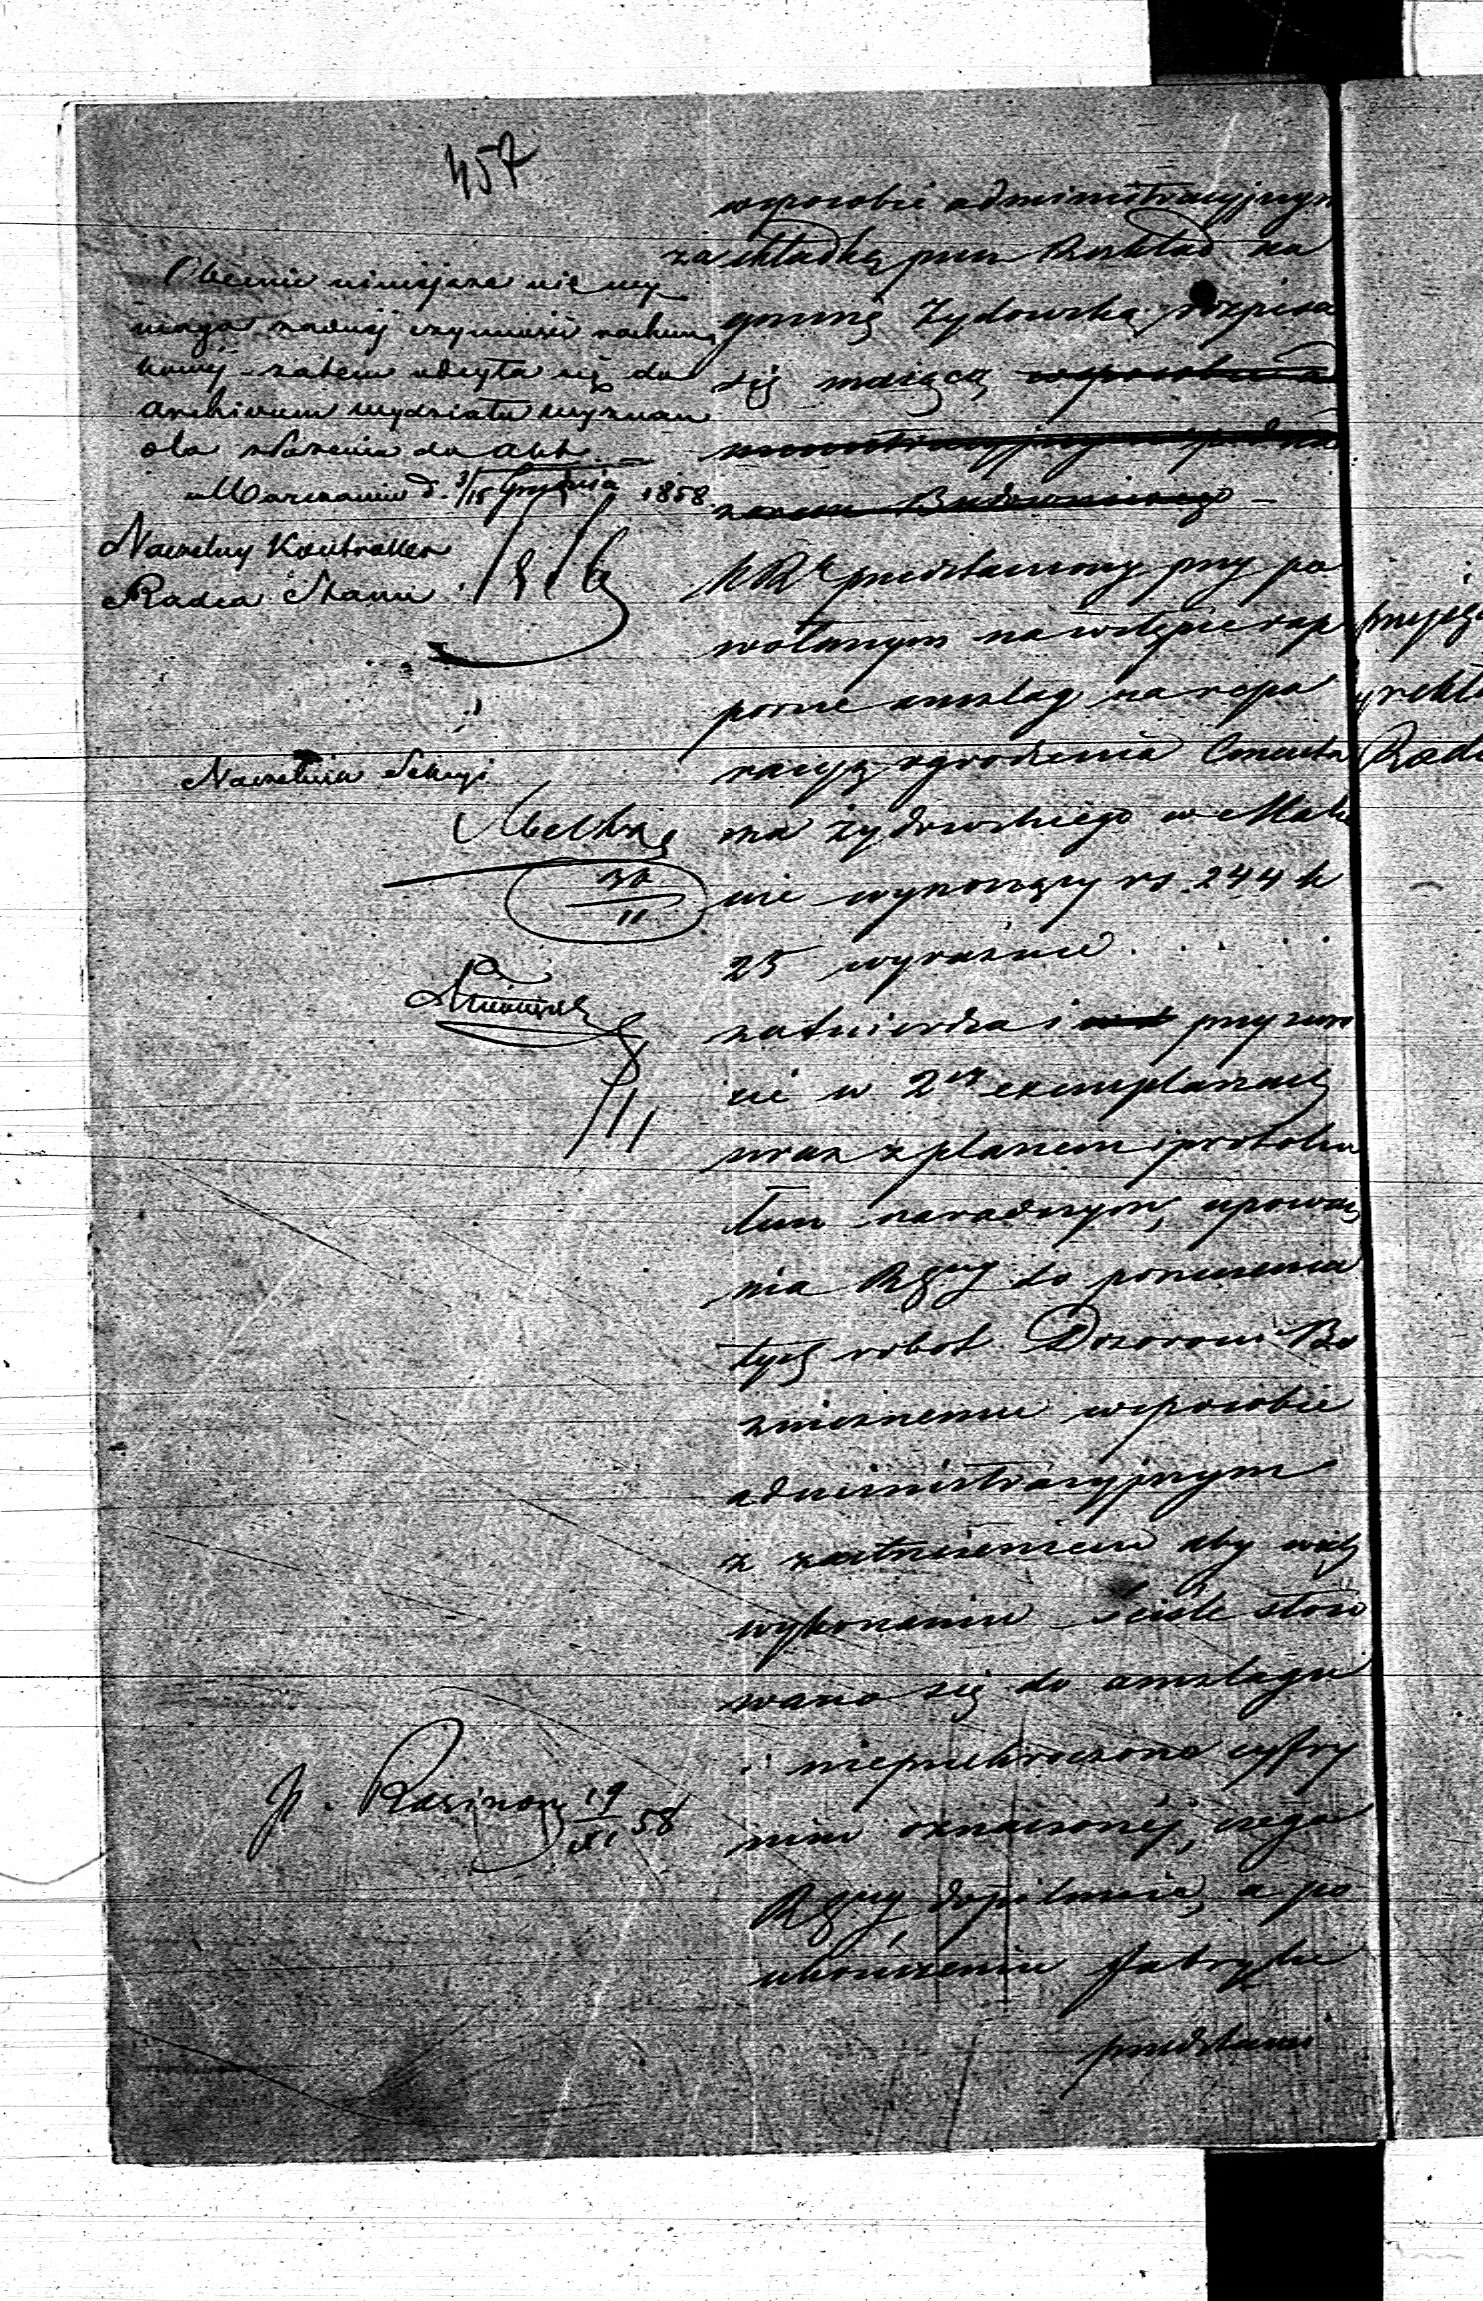 457
Obecnie niniejsze nie wy
maga żadnéj czynności rachun
kowéj – zatém odsyła się do
Archiwum Wydziału Wyznań
dla złożenia do Akt. –
w Warszawie d. 3/15 Grudnia 1858
Naczelny Kontroller
Radca Stanu
Naczelnik Sekcyi
30/11
19/XI 58
w sposobie administracyjnym
za składkę przez Rozkład na
gminę Żydowską rozpisa
się mającą w sposobie a
dministracyjnym pod
Budowniczego –
KRz przedstawiony przy po
wołanym na wstępie rap
porcie anszlag na repa
racyą ogrodzenia Cmenta
rza żydowskiego w Mako
wie wynoszący rs. 244 k
25 wyraźnie . . . .
zatwierdza i przy zwro
cie w 2ch exemplarzach
wraz z planem i protoku
łem naradczym, upoważ
nia Rząd Gny do poruczenia
tych robót Dozorowi Bo
żniczemu w sposobie
administracyjnym
z zastrzeżeniem aby w ich
wykonaniu ściśle stoso
wano się do anszlagu
i nieprzekroczono cyfry
nim oznaczonéj, czego
Rząd Gny dopilnuje, a po
ukończeniu fabryki
przedstawi